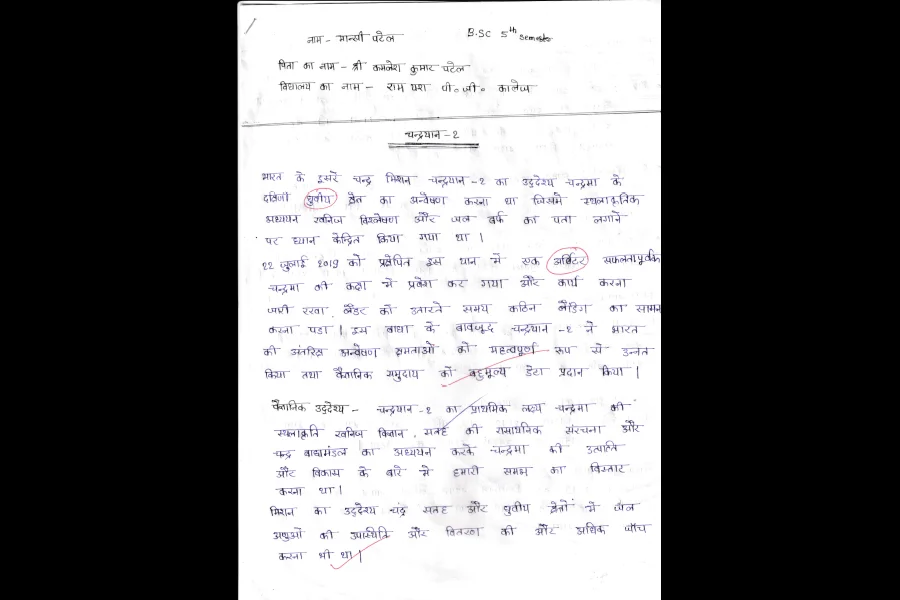 नाम - मान्सी पटेल B.SC 5th Semester
पिता का नाम - श्री कमलेश कुमार पटेल
विद्यालय का नाम - राम यश पी० जी० कालेज
चन्द्रयान - 2
भारत के दूसरे चन्द्र मिशन चन्द्रयान - 2 का उद्देश्य चन्द्रमा के
दक्षिणी ध्रुवीय क्षेत्र का अन्वेषण करना था जिसमें स्थलाकृतिक
अध्ययन खनिज विश्लेषण और जल बर्फ का पता लगाने
पर ध्यान केन्द्रित किया गया था |
22 जुलाई 2019 को प्रक्षेपित इस यान में एक आर्बिटर सफलतापूर्वक
चन्द्रमा की कक्षा में प्रवेश कर गया और कार्य करना
जारी रखा. लैंडर को उतारते समय कठिन लैंडिंग का सामना
करना पडा | इस बाधा के बावजूद चन्द्रयान - 2 ने भारत
की अंतरिक्ष अन्वेषण क्षमताओं को महत्वपूर्ण रूप से उन्नत
किया तथा वैज्ञानिक समुदाय को बहुमूल्य डेटा प्रदान किया |
वैज्ञानिक उद्देश्य - चन्द्रयान - 2 का प्राथमिक लक्ष्य चन्द्रमा की
स्थलाकृति खनिज विज्ञान, सतह की रासायनिक संरचना और
चन्द्र बाह्यमंडल का अध्ययन करके चन्द्रमा की उत्पत्ति
और विकास के बारे में हमारी समझ का विस्तार
करना था |
मिशन का उद्देश्य चंद्र सतह और ध्रुवीय क्षेत्रों में जल
अणुओं की उपस्थिति और वितरण की और अधिक जाँच
करना भी था |